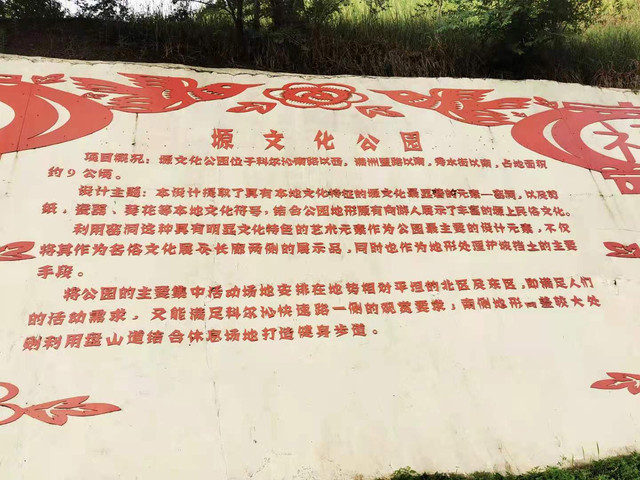 塬文化公园
项目概况：塬文化公园位于科尔沁南路以西，满洲里路以南，秀水街以南，占地面积
约9公顷。
设计主题：本设计撷取了具有本地文化特征的塬文化最显著的元素—窑洞，以及剪
纸、瓷器、葵花等本地文化符号，结合公园地形原有向游人展示了丰富的塬上民俗文化。
利用窑洞这种具有明显文化特色的艺术元素作为公园最主要的设计元素，不仅
将其作为名俗文化展长廊两侧的展示品，同时也作为地形处理护坡挡土的主要
手段。
将公园的主要集中活动场地安排在地势相对平坦的北区及东区，即满足人们
的活动需求，又能满足科尔沁快速路一侧的观赏要求；南侧地形差较大处
则利用登山道结合休息场地打造健身步道。
福